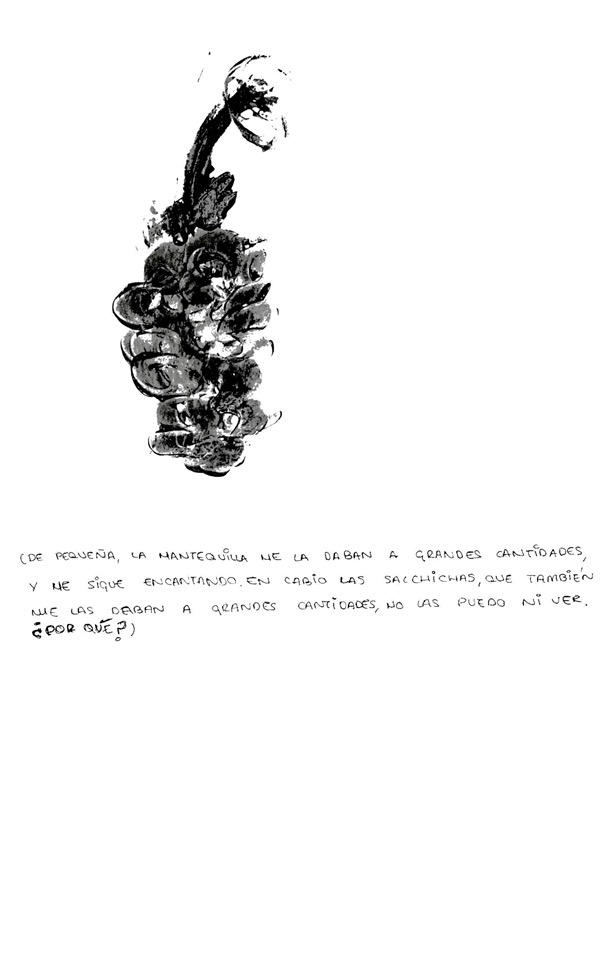 (DE PEQUEÑA, LA MANTEQUILLA ME LA DABAN A GRANDES CANTIDADES,
Y ME SIGUE ENCANTANDO. EN CABIO LAS SALCHICHAS, QUE TAMBIÉN
ME LAS DABAN A GRANDES CANTIDADES, NO LAS PUEDO NI VER.
¿POR QUÉ?)